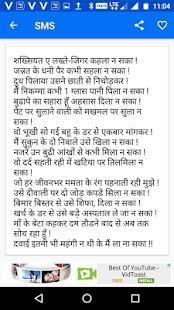 11:04
SMS
शख्सियत ए लख्ते-जिगर कहला न सका !
जन्नत के धनी पैर कभी सहला न सका !
दुध पिलाया उसने छाती से निचोड़कर
मैं निकम्मा कभी 1 ग्लास पानी पिला न सका !
बुढापे का सहारा हूँ अहसास दिला न सका !
पेट पर सुलाने वाली को मखमल पर सुला न
सका !
वो भूखी सो गई बहू के डर से एकबार मांगकर !
मैं सुकुन के दो निवाले उसे खिला न सका !
नजरें उन बुढी आंखों से कभी मिला न सका !
वो दर्द सहती रही में खटिया पर तिलमिला न
सका !
जो हर जीवनभर ममता के रंग पहनाती रही मुझे
उसे दीवाली पर दो जोड़ कपड़े सिला न सका !
बिमार बिस्तर से उसे शिफा, दिला न सका !
खर्च के डर से उसे बड़े अस्पताल ले जा न सका !
माँ के बेटा कहकर दम तौडने बाद से अब तक
सोच रहा हूँ !
दवाई इतनी भी महंगी न थी के मैं ला ना सका !!
Best Of YouTube -
VidToast
FREE
INSTALL